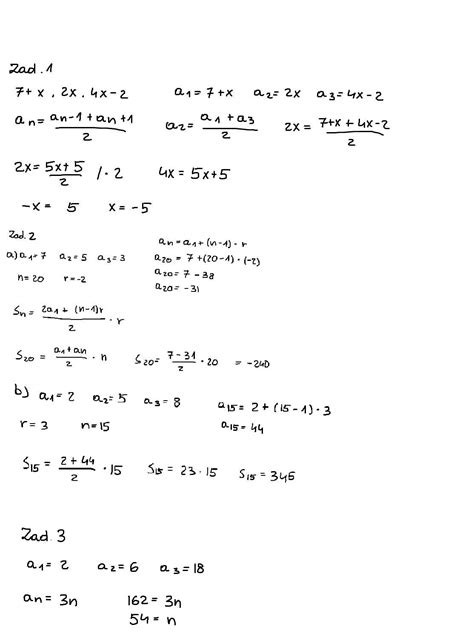 Zad. 1
7+x, 2x, 4x-2   a1=7+x   a2=2x   a3=4x-2
an = (an-1+an+1)/2   a2 = (a1+a3)/2   2x = (7+x+4x-2)/2
2x = (5x+5)/2 /·2   4x = 5x+5
-x = 5   x = -5
Zad. 2
a) a1=7   a2=5   a3=3   an=a1+(n-1)·r
n=20   r=-2   a20=7+(20-1)·(-2)
a20=7-38
a20=-31
Sn = (2a1+(n-1)r)/2 · r
S20 = (a1+an)/2 · n   S20 = (7-31)/2 · 20 = -240
b) a1=2   a2=5   a3=8   a15=2+(15-1)·3
r=3   n=15   a15=44
S15 = (2+44)/2 · 15   S15=23·15   S15=345
Zad. 3
a1=2   a2=6   a3=18
an=3n   162=3n
54=n